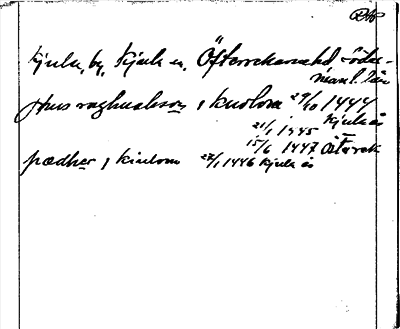 Kjula, by, Kjula sn, Österrekarnehd, Söder-
manl. län
jHus raghualzson j kiulom 29/10 1444
Kjula ås
21/1 1445
15/6 1447 Österrek
pædher j kiulom 22/1 1446 Kjula ås